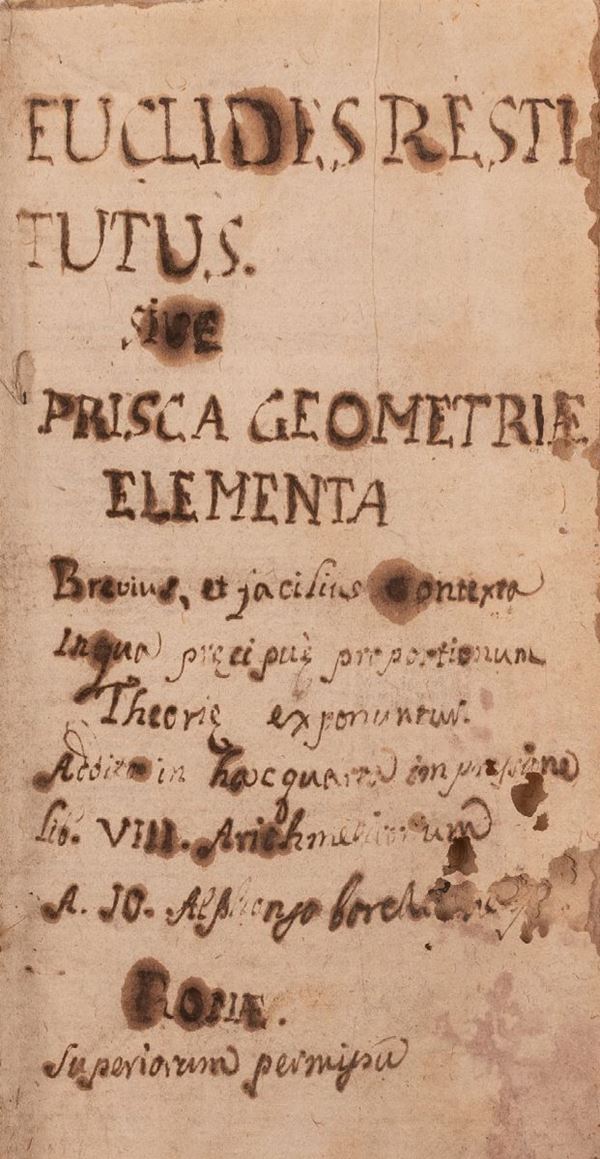 EUCLIDES RESTI
TUTUS.
sive
PRISCA GEOMETRIÆ
ELEMENTA
Brevius, et facilius contexta
In qua pręcipuè proportionum
Theorię exponuntur.
Addita in hac quarta impressione
lib. VIII. Arithmeticorum
A. IO. Alphonso
ROMÆ.
Superiorum permissu